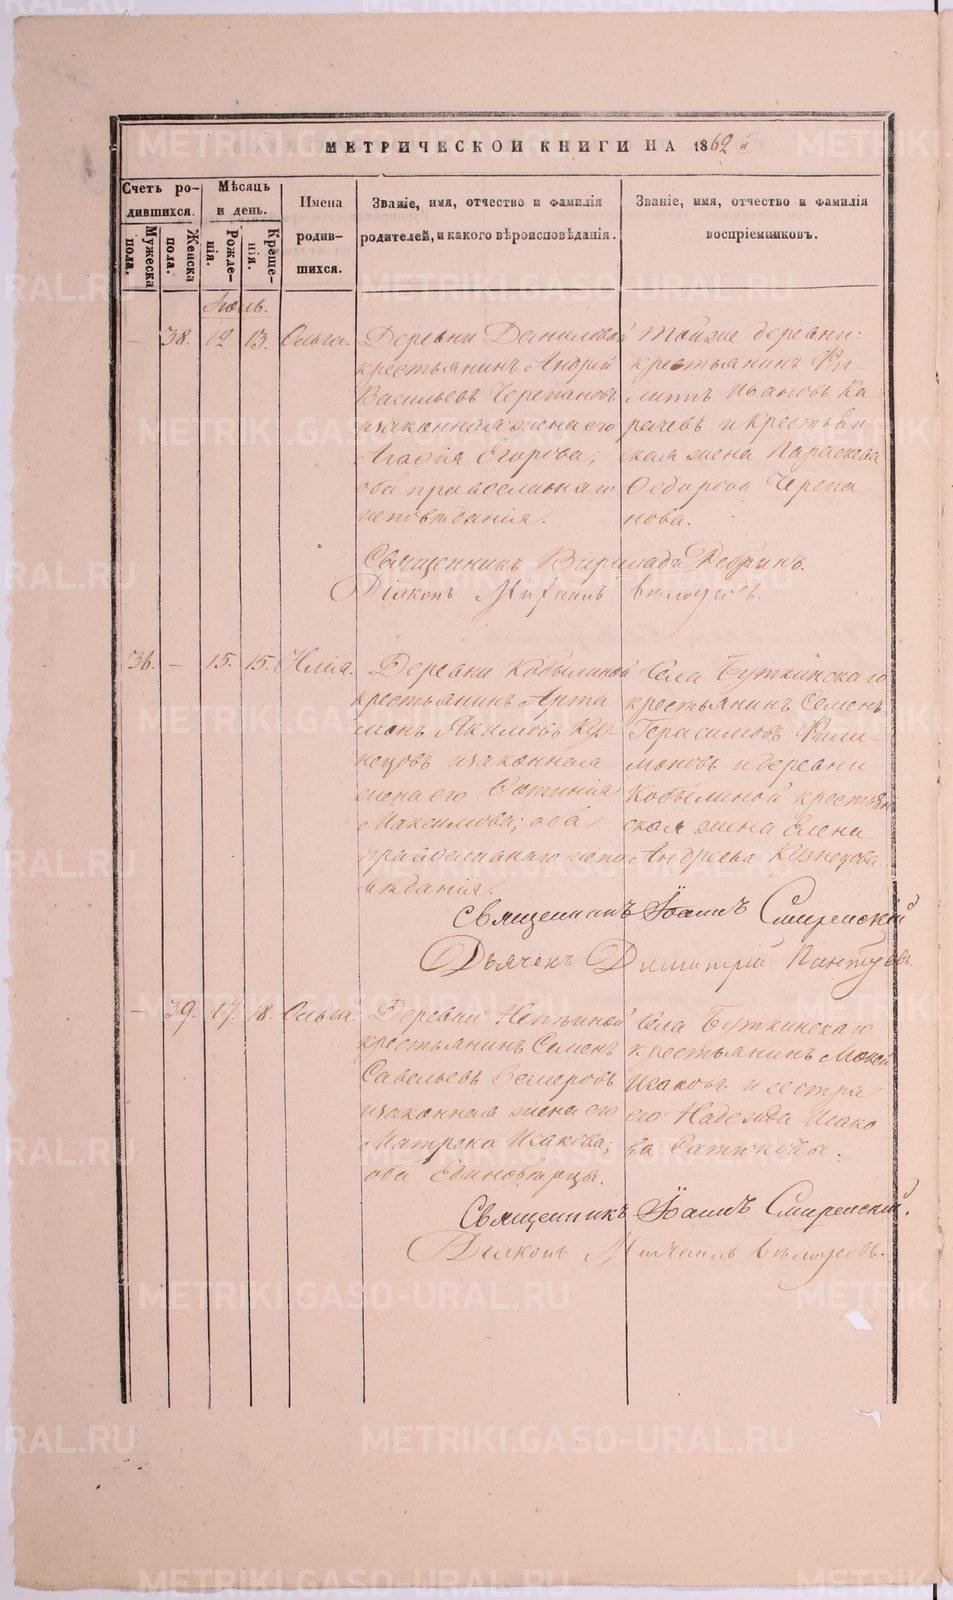 МЕТРИЧЕСКОЙ КНИГИ НА 1862 й
Счетъ ро-
дившихся.
Мѣсяцъ
и день.
Имена
родив-
шихся.
Званіе, имя, отчество и фамилія
родителей, и какого вѣроисповѣданія.
Званіе, имя, отчество и фамилія
воспріемниковъ.
Мужеска
пола.
Женска
пола.
Рожде-
нія.
Креще-
нія.
Іюль.
- 38. 12 13. Ольга.
Деревни Даниловой
крестьянинъ Андрей
Васильевъ Черепановъ
и законная жена его
Агафія Егорова;
оба православнаго
исповѣданія.
Тойже деревни:
крестьянинъ Фи-
липпъ Ивановъ Ка
рачевъ и крестьян
ская жена Параскева
Федорова Черепа
нова.
Священникъ
Діаконъ
36. - 15. 15. Илія.
Деревни Кобылиной
крестьянинъ Арта
монъ Якимовъ Куз-
нецовъ и законная
жена его Фотинія
Максимова; оба
православнаго испо
вѣданія.
Села Буткинскаго
крестьянинъ Семенъ
Герасимовъ Фили-
моновъ и деревни
Кобылиной крестьян
ская жена Елена
Андреева Кузнецова.
Священникъ Іоаннъ Смиренскій
Дьячекъ Димитрій
- 39. 17. 18. Ольга.
Деревни
крестьянинъ Семенъ
Савельевъ
и законная жена его
Матрона Исакова;
оба Единовѣрцы.
Села Буткинскаго
крестьянинъ
Исаковъ и сестра
его Надежда Исако
ва
Священникъ Іоаннъ Смиренскій.
Діаконъ Михаилъ
METRIKI.GASO-URAL.RU